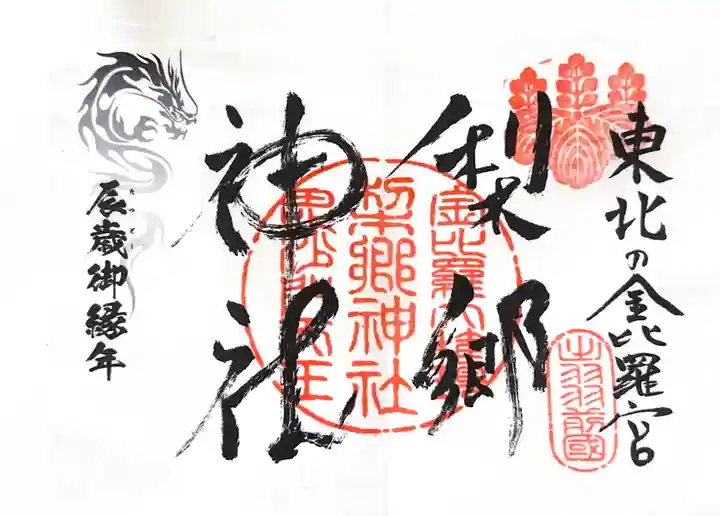 東北の金毘羅宮
出羽前國
梨郷
神社
金比羅大権
梨郷神社
辰歳御縁年
たつどし